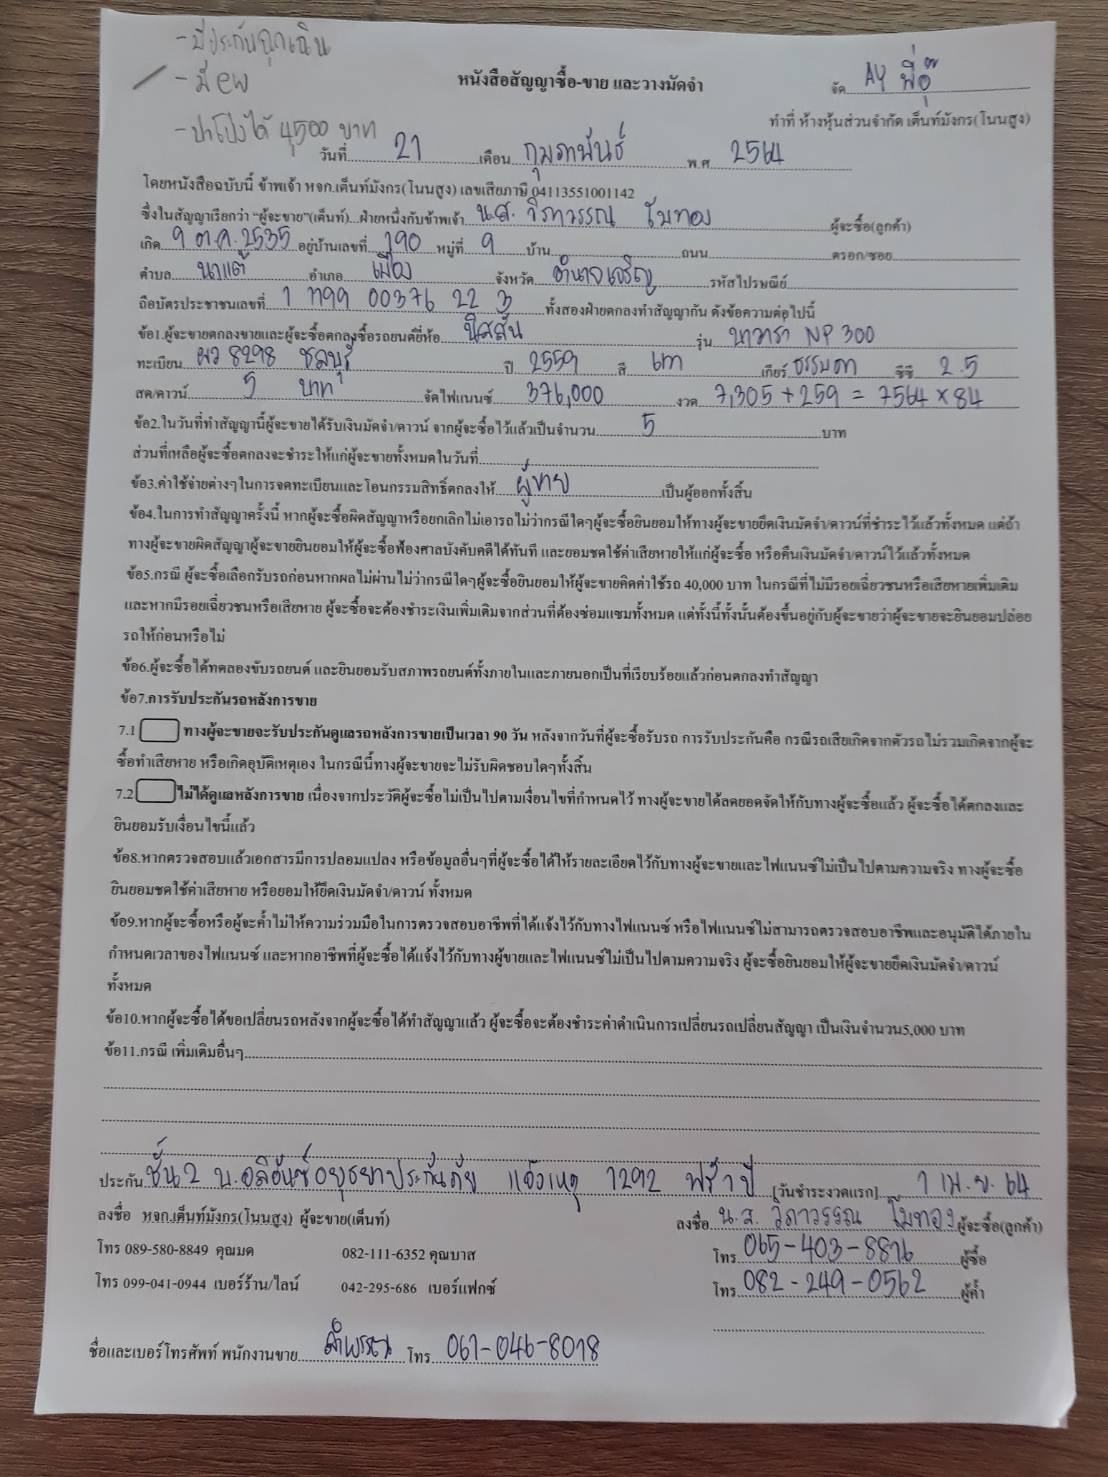 - มีประกันฉุกเฉิน
- มี ew
หนังสือสัญญาซื้อ-ขาย และวางมัดจำ
จัด AY พี่อุ๊
ทำที่ ห้างหุ้นส่วนจำกัด เต็นท์มังกร(โนนสูง)
- ปาโป่งได้ 4,500 บาท
วันที่ 21 เดือน กุมภาพันธ์ พ.ศ. 2564
โดยหนังสือฉบับนี้ ข้าพเจ้า หจก.เต็นท์มังกร(โนนสูง) เลขเสียภาษี 04113551001142
ซึ่งในสัญญาเรียกว่า "ผู้จะขาย"(เต็นท์)...ฝ่ายหนึ่งกับข้าพเจ้า น.ส. วิภาวรรณ โมทอง ผู้จะซื้อ(ลูกค้า)
เกิด 9 ต.ค. 2535 อยู่บ้านเลขที่ 190 หมู่ที่ 9 บ้าน ถนน ตรอก/ซอย
ตำบล นาแต้ อำเภอ เมือง จังหวัด อำนาจเจริญ รหัสไปรษณีย์
ถือบัตรประชาชนเลขที่ 1 1199 00376 22 3 ทั้งสองฝ่ายตกลงทำสัญญากัน ดังข้อความต่อไปนี้
ข้อ1.ผู้จะขายตกลงขายและผู้จะซื้อตกลงซื้อรถยนต์ยี่ห้อ นิสสัน รุ่น นาวารา NP 300
ทะเบียน ผว 8298 ชลบุรี ปี 2559 สี เทา เกียร์ ธรรมดา ซีซี 2.5
สด/ดาวน์ 5 บาท จัดไฟแนนซ์ 376,000 งวด 7,305 + 259 = 7564 x 84
ข้อ2.ในวันที่ทำสัญญานี้ผู้จะขายได้รับเงินมัดจำ/ดาวน์ จากผู้จะซื้อไว้แล้วเป็นจำนวน 5 บาท
ส่วนที่เหลือผู้จะซื้อตกลงจะชำระให้แก่ผู้จะขายทั้งหมดในวันที่
ข้อ3.ค่าใช้จ่ายต่างๆในการจดทะเบียนและโอนกรรมสิทธิ์ตกลงให้ ผู้ขาย เป็นผู้ออกทั้งสิ้น
ข้อ4.ในการทำสัญญาครั้งนี้ หากผู้จะซื้อผิดสัญญาหรือยกเลิกไม่เอารถไม่ว่ากรณีใดๆผู้จะซื้อยินยอมให้ทางผู้จะขายยึดเงินมัดจำ/ดาวน์ที่ชำระไว้แล้วทั้งหมด แต่ถ้า
ทางผู้จะขายผิดสัญญาผู้จะขายยินยอมให้ผู้จะซื้อฟ้องศาลบังคับคดีได้ทันที และยอมชดใช้ค่าเสียหายให้แก่ผู้จะซื้อ หรือคืนเงินมัดจำ/ดาวน์ไว้แล้วทั้งหมด
ข้อ5.กรณี ผู้จะซื้อเลือกรับรถก่อนหากผลไม่ผ่านไม่ว่ากรณีใดๆผู้จะซื้อยินยอมให้ผู้จะขายคิดค่าใช้รถ 40,000 บาท ในกรณีที่ไม่มีรอยเฉี่ยวชนหรือเสียหายเพิ่มเติม
และหากมีรอยเฉี่ยวชนหรือเสียหาย ผู้จะซื้อจะต้องชำระเงินเพิ่มเติมจากส่วนที่ต้องซ่อมแซมทั้งหมด แต่ทั้งนี้ทั้งนั้นต้องขึ้นอยู่กับผู้จะขายว่าผู้จะขายจะยินยอมปล่อย
รถให้ก่อนหรือไม่
ข้อ6.ผู้จะซื้อได้ทดลองขับรถยนต์ และยินยอมรับสภาพรถยนต์ทั้งภายในและภายนอกเป็นที่เรียบร้อยแล้วก่อนตกลงทำสัญญา
ข้อ7.การรับประกันรถหลังการขาย
7.1 ทางผู้จะขายจะรับประกันดูแลรถหลังการขายเป็นเวลา 90 วัน หลังจากวันที่ผู้จะซื้อรับรถ การรับประกันคือ กรณีรถเสียเกิดจากตัวรถ ไม่รวมเกิดจากผู้จะ
ซื้อทำเสียหาย หรือเกิดอุบัติเหตุเอง ในกรณีนี้ทางผู้จะขายจะไม่รับผิดชอบใดๆทั้งสิ้น
7.2 ไม่ได้ดูแลหลังการขาย เนื่องจากประวัติผู้จะซื้อไม่เป็นไปตามเงื่อนไขที่กำหนดไว้ ทางผู้จะขายได้ลดยอดจัดให้กับทางผู้จะซื้อแล้ว ผู้จะซื้อได้ตกลงและ
ยินยอมรับเงื่อนไขนี้แล้ว
ข้อ8.หากตรวจสอบแล้วเอกสารมีการปลอมแปลง หรือข้อมูลอื่นๆที่ผู้จะซื้อได้ให้รายละเอียดไว้กับทางผู้จะขายและไฟแนนซ์ไม่เป็นไปตามความจริง ทางผู้จะซื้อ
ยินยอมชดใช้ค่าเสียหาย หรือยอมให้ยึดเงินมัดจำ/ดาวน์ ทั้งหมด
ข้อ9.หากผู้จะซื้อหรือผู้จะค้ำไม่ให้ความร่วมมือในการตรวจสอบอาชีพที่ได้แจ้งไว้กับทางไฟแนนซ์ หรือไฟแนนซ์ไม่สามารถตรวจสอบอาชีพและอนุมัติได้ภายใน
กำหนดเวลาของไฟแนนซ์ และหากอาชีพที่ผู้จะซื้อได้แจ้งไว้กับทางผู้ขายและไฟแนนซ์ไม่เป็นไปตามความจริง ผู้จะซื้อยินยอมให้ผู้จะขายยึดเงินมัดจำ/ดาวน์
ทั้งหมด
ข้อ10.หากผู้จะซื้อได้ขอเปลี่ยนรถหลังจากผู้จะซื้อได้ทำสัญญาแล้ว ผู้จะซื้อจะต้องชำระค่าดำเนินการเปลี่ยนรถเปลี่ยนสัญญา เป็นเงินจำนวน5,000 บาท
ข้อ11.กรณี เพิ่มเติมอื่นๆ
ประกัน ชั้น 2 บ.อลิอันซ์อยุธยาประกันภัย แจ้งเหตุ 1292 ฟรี 1 ปี [วันชำระงวดแรก] 1 เม.ย. 64
ลงชื่อ หจก.เต็นท์มังกร(โนนสูง) ผู้จะขาย(เต็นท์) ลงชื่อ น.ส. วิภาวรรณ โมทอง ผู้จะซื้อ(ลูกค้า)
โทร 089-580-8849 คุณมด 082-111-6352 คุณบาส โทร 065-403-8876 ผู้ซื้อ
โทร 099-041-0944 เบอร์ร้าน/ไลน์ 042-295-686 เบอร์แฟกซ์ โทร 082-249-0562 ผู้ค้ำ
ชื่อและเบอร์โทรศัพท์ พนักงานขาย โทร 061-046-8018